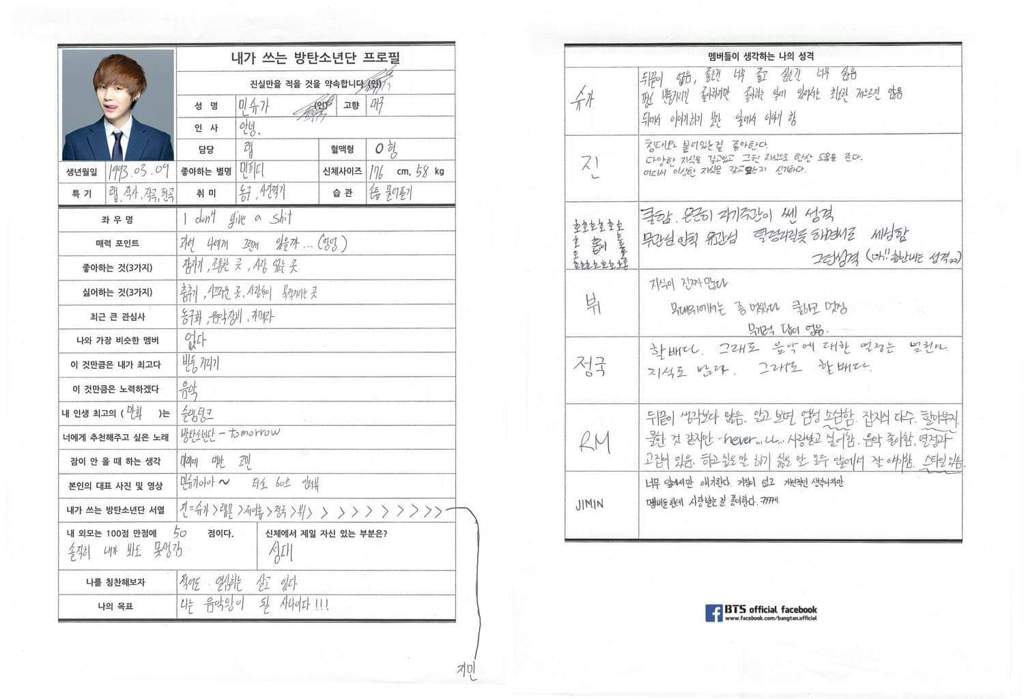 내가 쓰는 방탄소년단 프로필
진실만을 적을 것을 약속합니다 (인)
성 명 민슈가 (인) 고향 대구
인 사 안녕.
담당 랩 혈액형 O 형
생년월일 1993.03.09 좋아하는 별명 민피디 신체사이즈 176 cm, 58 kg
특 기 랩, 작사, 작곡, 편곡 취 미 농구, 사진찍기 습 관 손톱 물어뜯기
좌 우 명 I don't give a shit
매력 포인트 과연 나에게 그런게 있을까... (암울)
좋아하는 것(3가지) 잠자기, 조용한 곳, 사람 없는 곳
싫어하는 것(3가지) 춤추기, 시끄러운 곳, 사람들이 북적이는 곳
최근 큰 관심사 농구화, 음악장비, 카메라
나와 가장 비슷한 멤버 없다
이 것만큼은 내가 최고다 빈둥거리기
이 것만큼은 노력하겠다 음악
내 인생 최고의 ( 만화 )는 슬램덩크
너에게 추천해주고 싶은 노래 방탄소년단 - tomorrow
잠이 안 올 때 하는 생각 미래에 대한 고민
본인의 대표 사진 및 영상 민슈가이야~
내가 쓰는 방탄소년단 서열 진=슈가>랩몬>제이홉>정국>뷔> > > > > > > > > >
지민
내 외모는 100점 만점에 50 점이다.
솔직히 내가 봐도 못생김
신체에서 제일 자신 있는 부분은?
성대
나를 칭찬해보자 적어도 열심히는 살고 있다
나의 목표 나는 음악왕이 될 사나이다!!!
멤버들이 생각하는 나의 성격
슈가 뒤끝이 없음, 좋은건 너무 좋고 싫은건 너무 싫음
뒤에서 이야기하기 보단 앞에서 이야기 함
진 침대와 붙어있는걸 좋아한다.
다양한 지식을 갖고있고 그런 지식으로 인생에 도움을 준다.
어디서 이상한 지식을 갖고 오는지 신기하다.
호호호호호호
호 홉이 호
호호호호호호
쿨함. 은근히 자기주관이 쎈 성격
무관심 인척 유관심 딱딱거릴듯 하면서도 세심함
뷔 지식이 진짜 많다
무대위에서는 좀 멋있다 쿨하고 멋짐
정국 할배다. 그래도 음악에 대한 열정은 넘친다.
지식도 많다. 그래도 할배다.
RM 뒤끝이 생각보다 많음. 알고 보면 엄청 소심함. 잡지식 다수. 할아버지
같은 것 같지만 - never... 사랑받고 싶어함. 음악 좋아함. 열정과
고집이 있음. 하고 싶은 말 하기 싫은 말 모두 앞에서 잘 얘기함. 스타일 있음.
JIMIN 너무 앞에서만 얘기한다. 거침이 없고 개방적인 생각이지만
멤버들한테 사랑받는걸 좋아한다. ㅋㅋㅋ
BTS official facebook
www.facebook.com/bangtan.official